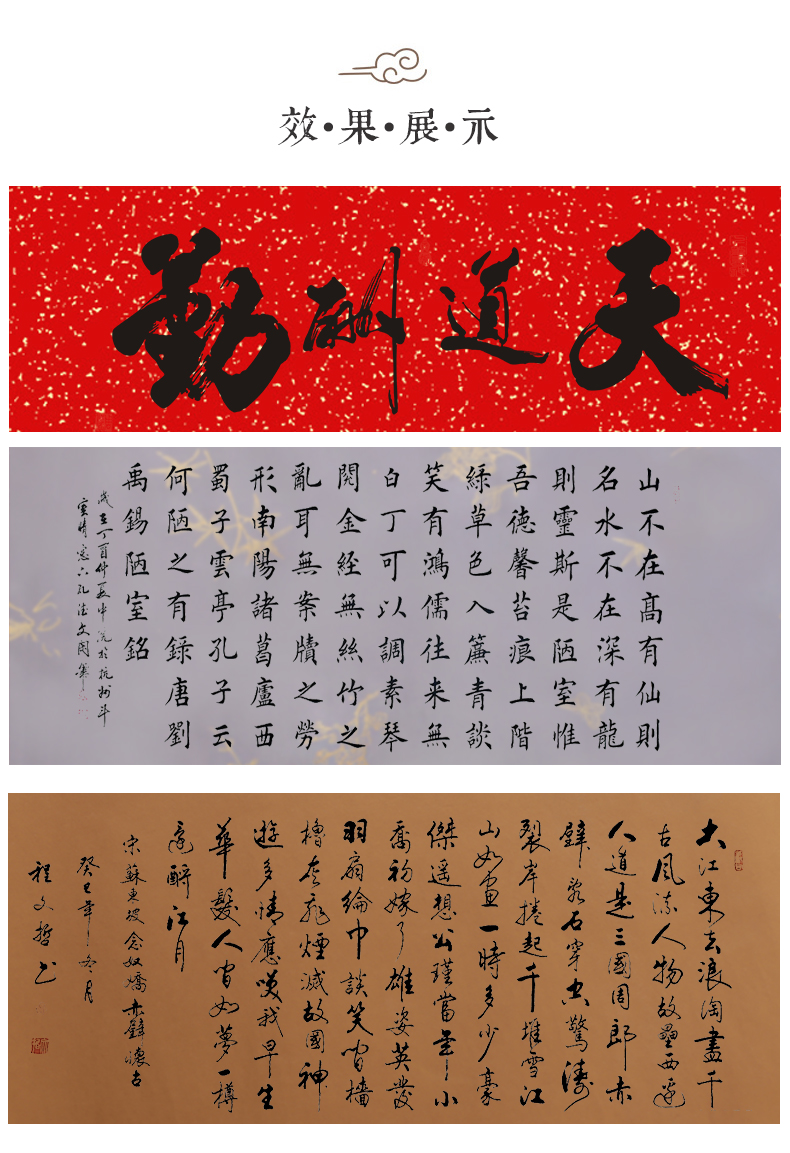 效·果·展·示
天道酬勤
山不在髙有仙則
名水不在深有龍
則靈斯是陋室惟
吾德馨苔痕上階
綠草色入簾青談
笑有鴻儒往来無
白丁可以調素琴
閱金経無絲竹之
亂耳無案牘之勞
形南陽諸葛廬西
蜀子雲亭孔子云
何陋之有錄唐劉
禹錫陋室銘
歲在丁酉仲夏中浣於杭州斗
大江東去浪淘盡千
古風流人物故壘西邊
人道是三國周郎赤
壁亂石穿空驚濤
裂岸捲起千堆雪江
山如畫一時多少豪
傑遥想公瑾當年小
喬初嫁了雄姿英發
羽扇綸巾談笑間檣
櫓灰飛煙滅故國神
遊多情應笑我早生
華髮人間如夢一樽
還酹江月
宋蘇東坡念奴嬌赤壁懷古
癸巳年冬月
程文哲书